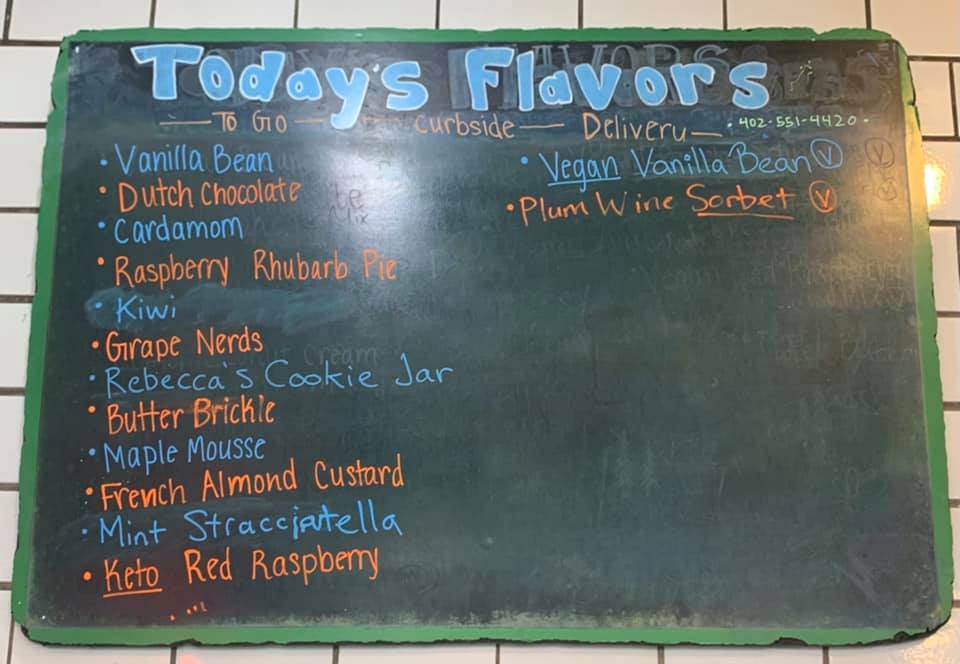 Today's Flavors
— To Go — Curbside — Delivery — • 402-551-4420 •
• Vanilla Bean
• Dutch Chocolate
• Cardamom
• Raspberry Rhubarb Pie
• Kiwi
• Grape Nerds
• Rebecca's Cookie Jar
• Butter Brickle
• Maple Mousse
• French Almond Custard
• Mint Stracciatella
• Keto Red Raspberry
• Vegan Vanilla Bean Ⓥ
• Plum Wine Sorbet Ⓥ